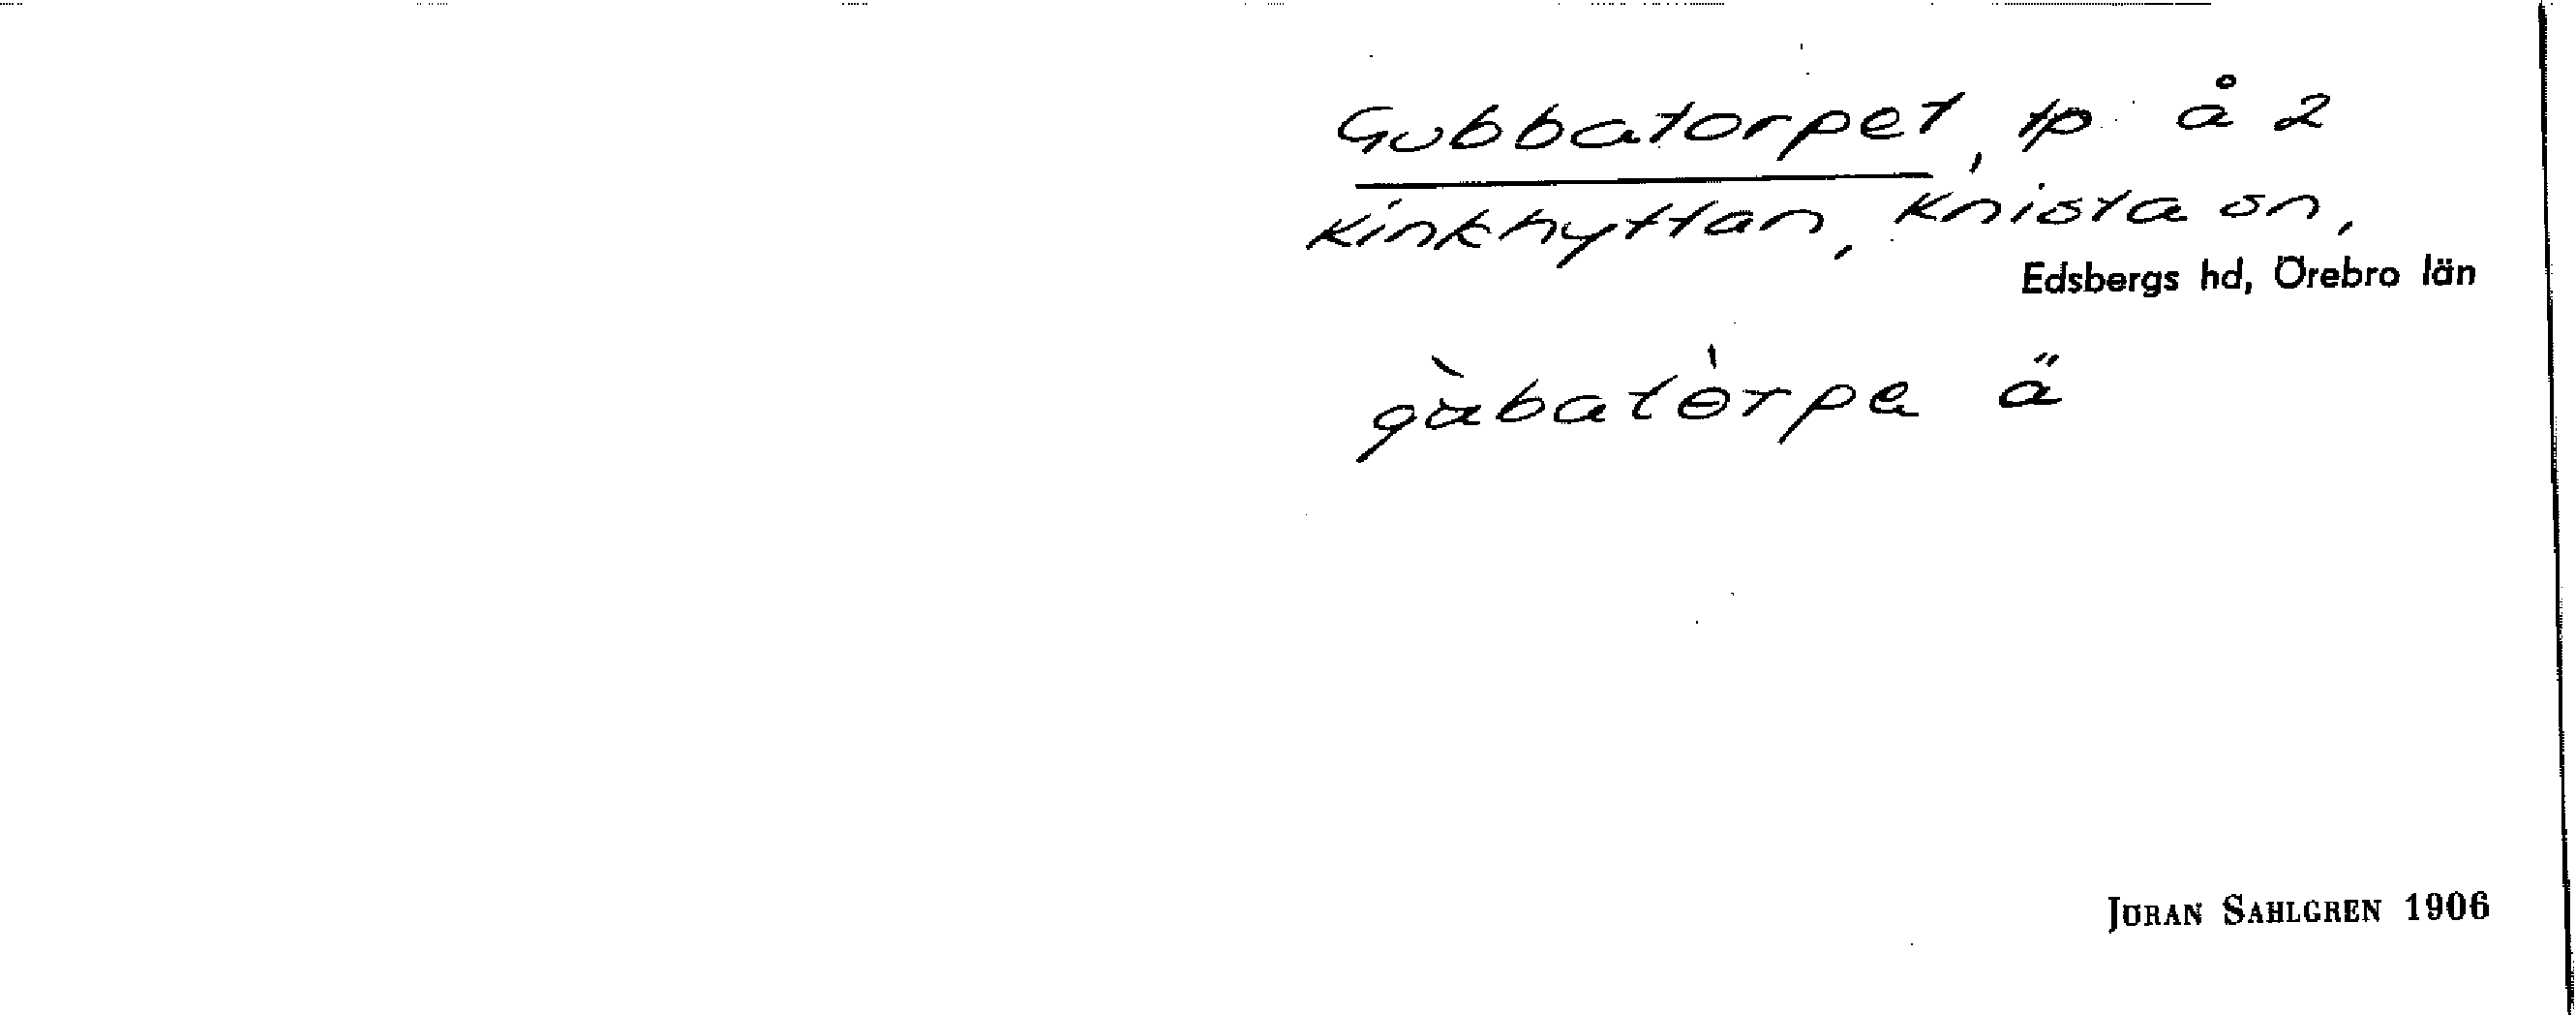 Gubbatorpet, tp å 2
Kinkhyttan, Knista sn,
Edsbergs hd, Örebro län
gàbatɵ̀rpa ä
JÖRAN SAHLGREN 1906